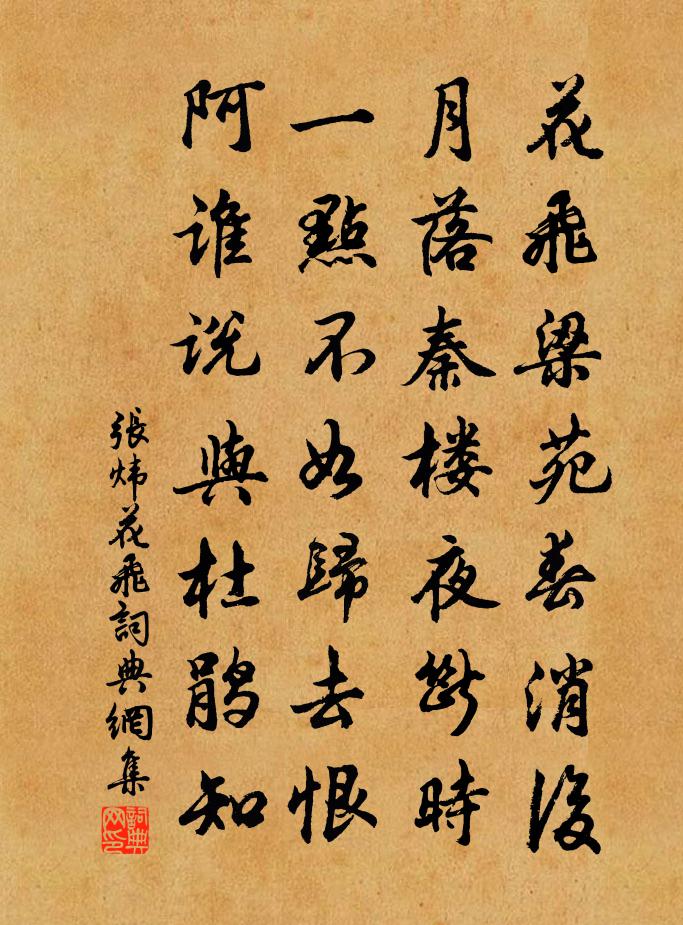 花飛梁苑春消後
月落秦楼夜斷時
一點不如歸去恨
阿誰說與杜鵑知
張炜花飛詞典網集
詞典网印